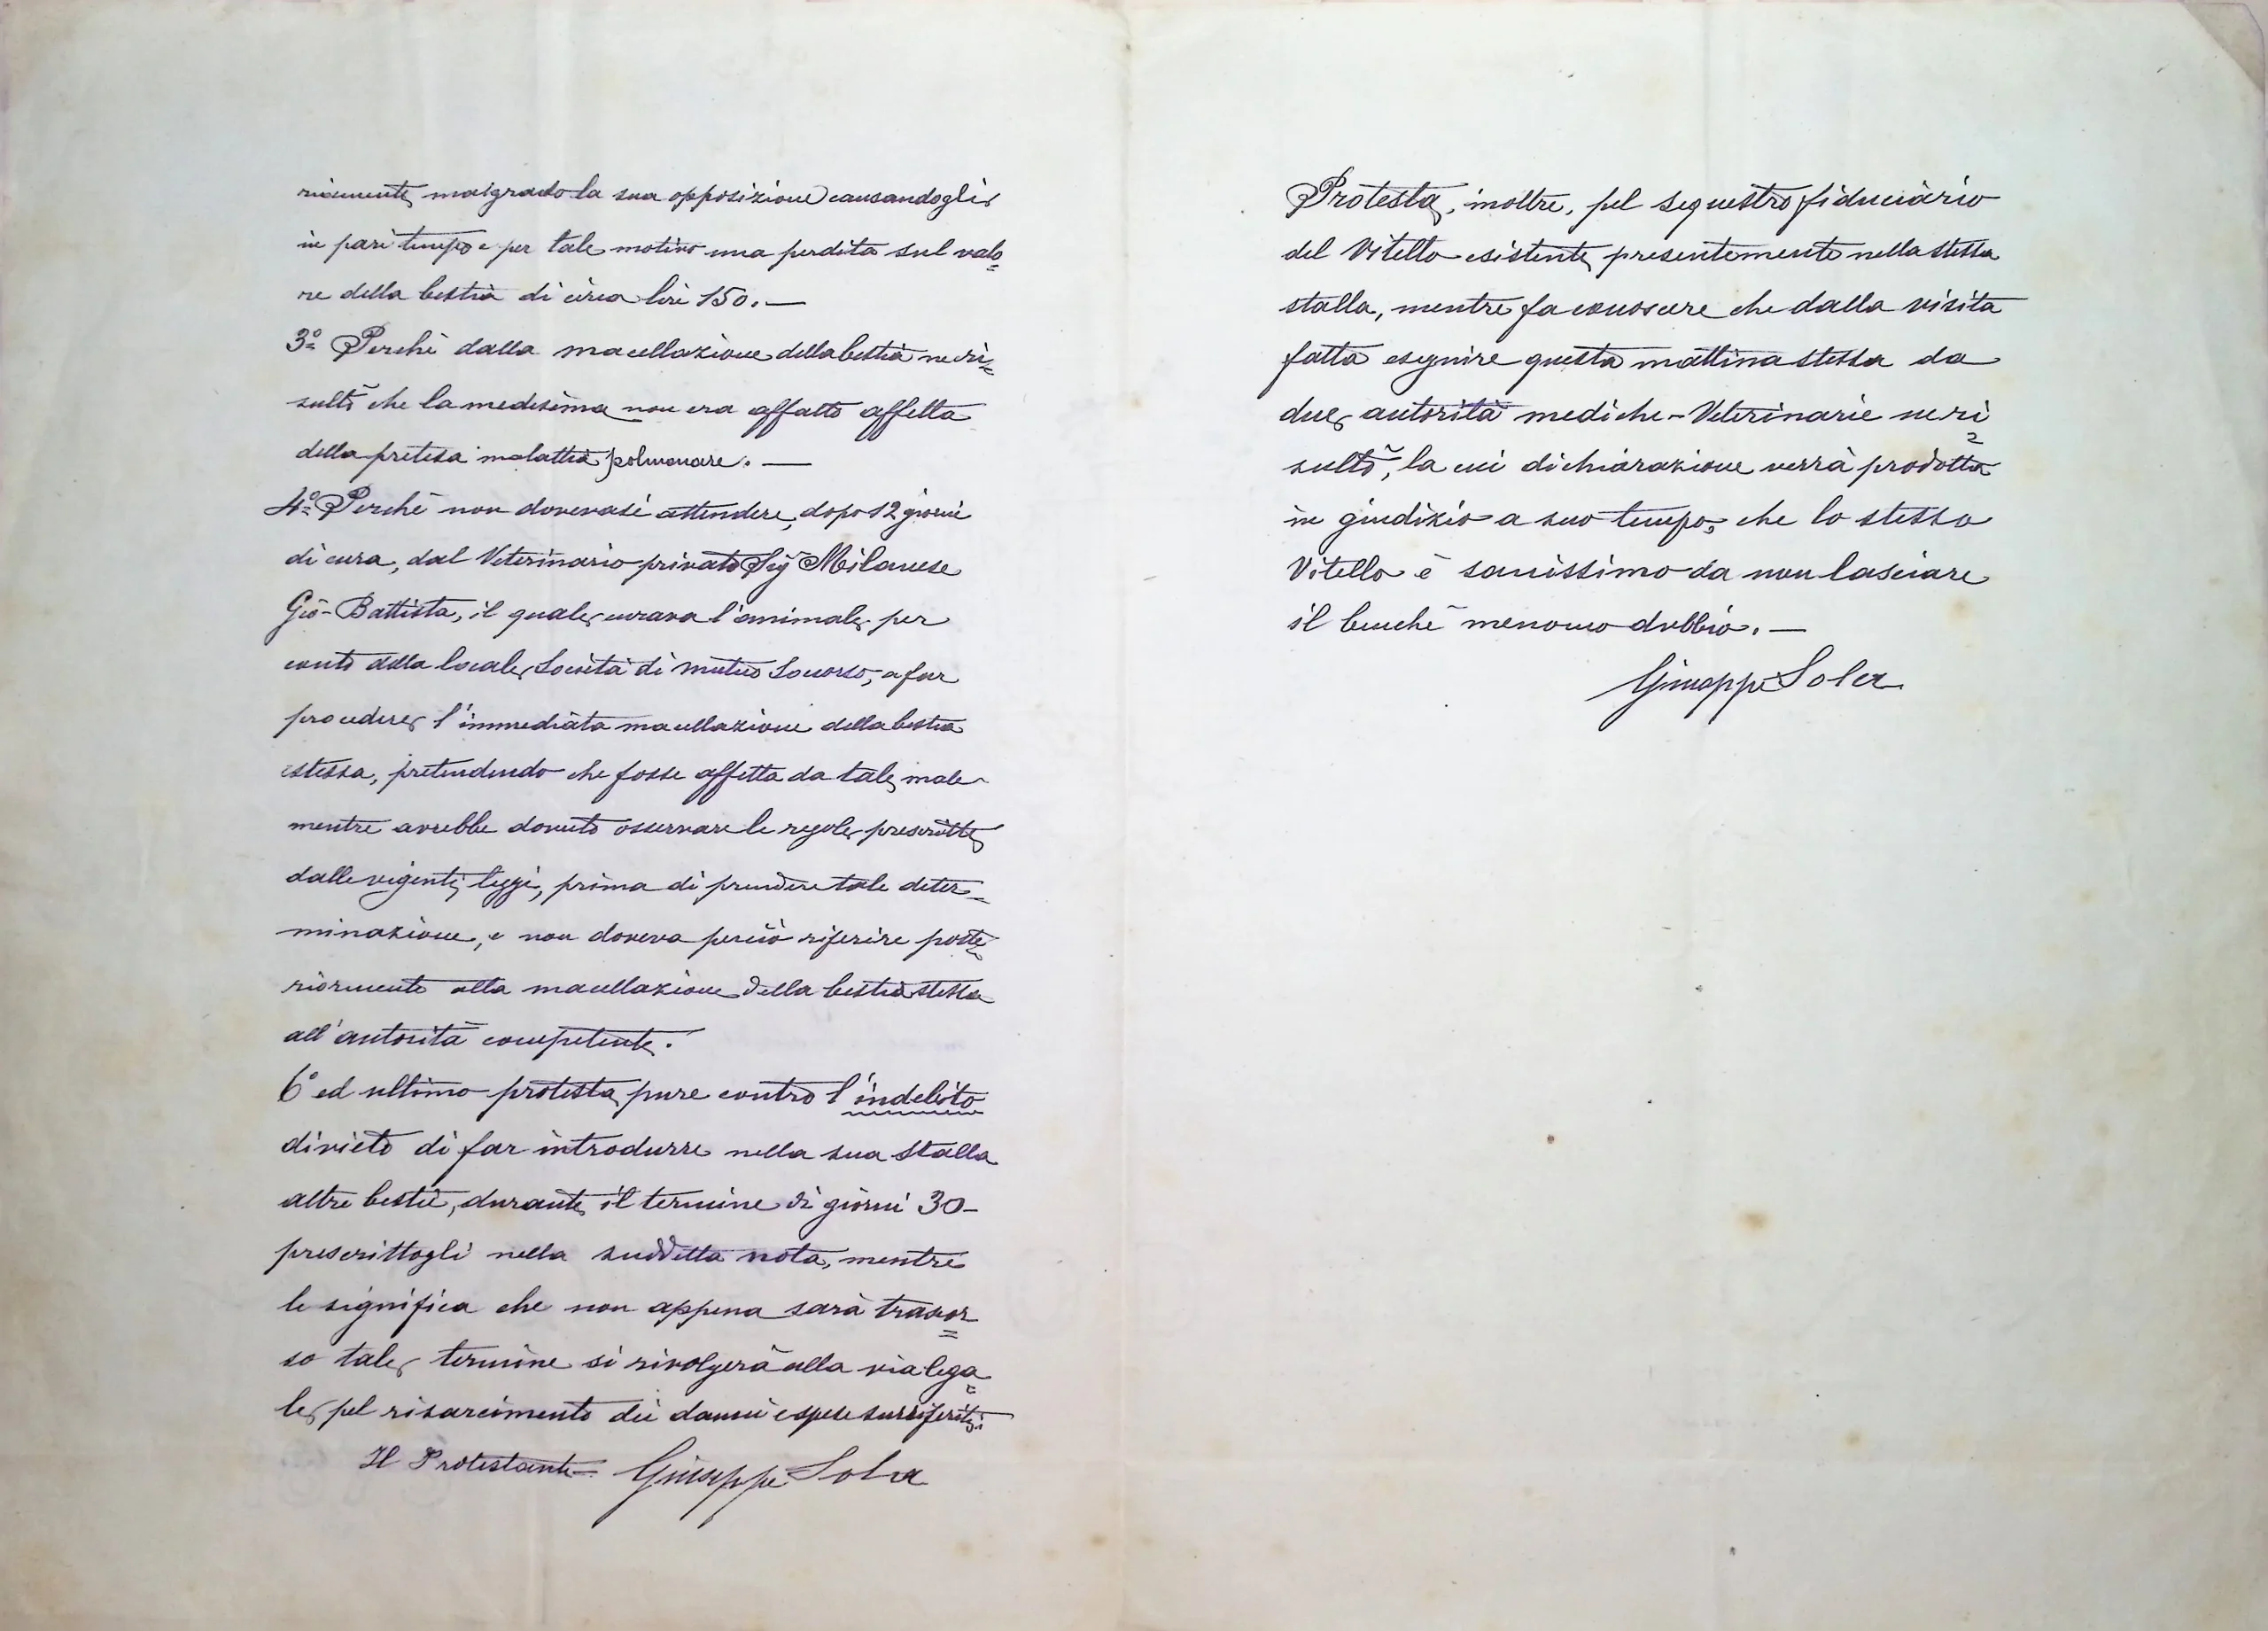 riamente malgrado la sua opposizione causandogli
in pari tempo e per tale motivo una perdita sul valo=
re della bestia di circa lire 150.—
3º Perchè dalla macellazione della bestia ne ri=
sultò che la medesima non era affatto affetta
della pretesa malattia polmonare.—
4º Perchè non dovevasi attendere, dopo 12 giorni
di cura, dal Veterinario privato Sig Milanese
Gio-Battista, il quale curava l'animale per
conto della locale Società di mutuo Soccorso, a far
procedere l'immediata macellazione della bestia
stessa, pretendendo che fosse affetta da tale male
mentre avrebbe dovuto osservare le regole prescritte
dalle vigenti leggi, prima di prendere tale deter=
minazione, e non doveva perciò riferire poste=
riormente alla macellazione della bestia stessa
all'autorità competente.
6º ed ultimo protesta pure contro l'indebito
divieto di far introdurre nella sua stalla
altre bestie, durante il termine di giorni 30-
prescrittogli nella suddetta nota, mentre
le significa che non appena sarà trascor=
so tale termine si rivolgerà alla via lega=
le pel risarcimento dei danni e spese surriferiti.
Il Protestante Giuseppe Sola
Protesta, inoltre, pel sequestro fiduciario
del Vitello esistente presentemente nella stessa
stalla, mentre fa conoscere che dalla visita
fatta eseguire questa mattina stessa da
due autorità mediche-Veterinarie ne ri=
sultò, la cui dichiarazione verrà prodotta
in giudizio a suo tempo, che lo stesso
Vitello è sanissimo da non lasciare
il benchè menomo dubbio.—
Giuseppe Sola